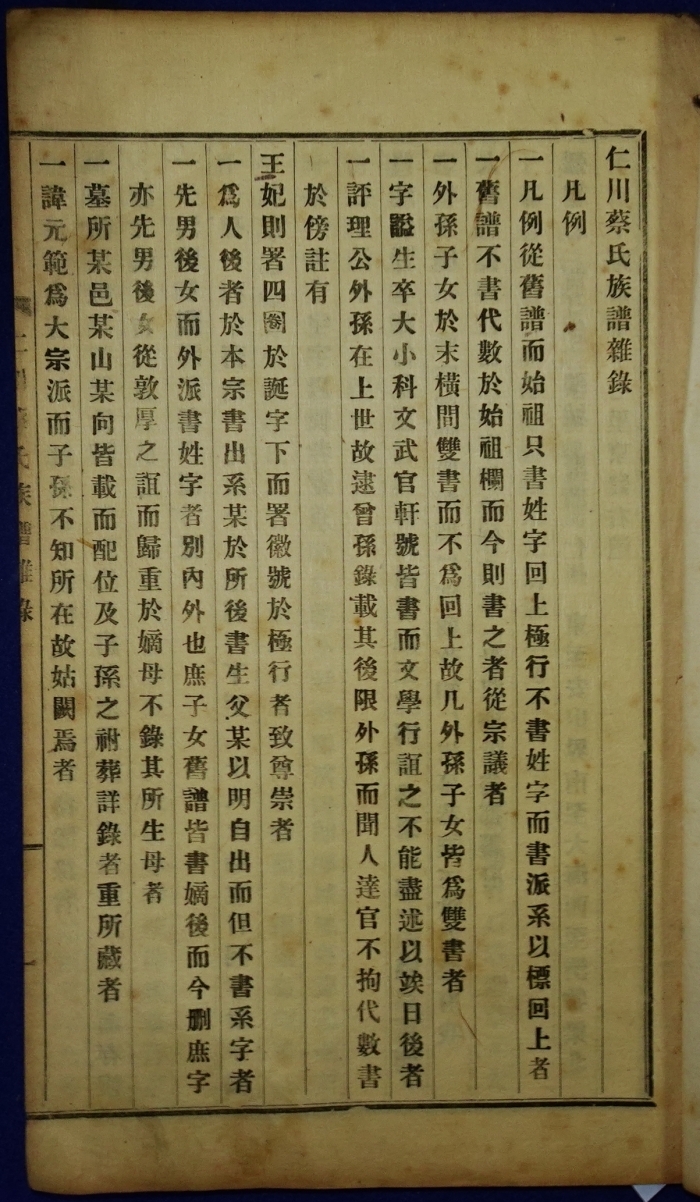 仁川蔡氏族譜雜錄
凡例
一凡例從舊譜而始祖只書姓字回上極行不書姓字而書派系以標回上者
一舊譜不書代數於始祖欄而今則書之者從宗議者
一外孫子女於末橫間雙書而不爲回上故凡外孫子女皆爲雙書者
一字謚生卒大小科文武官軒號皆書而文學行誼之不能盡述以竢日後者
一評理公外孫在上世故逮曾孫錄載其後限外孫而聞人達官不拘代數書
於傍註有
王妃則署四圈於誕字下而署徽號於極行者致尊崇者
一爲人後者於本宗書出系某於所後書生父某以明自出而但不書系字者
一先男後女而外派書姓字者別內外也庶子女舊譜皆書嫡後而今删庶字
亦先男後女從敦厚之誼而歸重於嫡母不錄其所生母者
一墓所某邑某山某向皆載而配位及子孫之祔葬詳錄者重所藏者
一諱元範爲大宗派而子孫不知所在故姑闕焉者
氏族譜雜錄